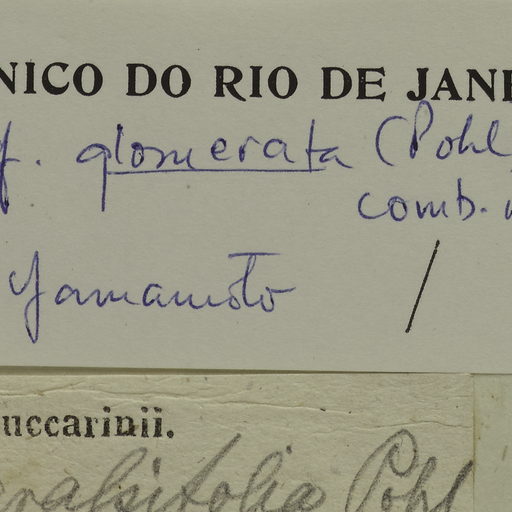 NICO DO RIO DE JANE
f. glomerata (Pohl
comb.
Yamamoto
/
uccarinii.
Pohl